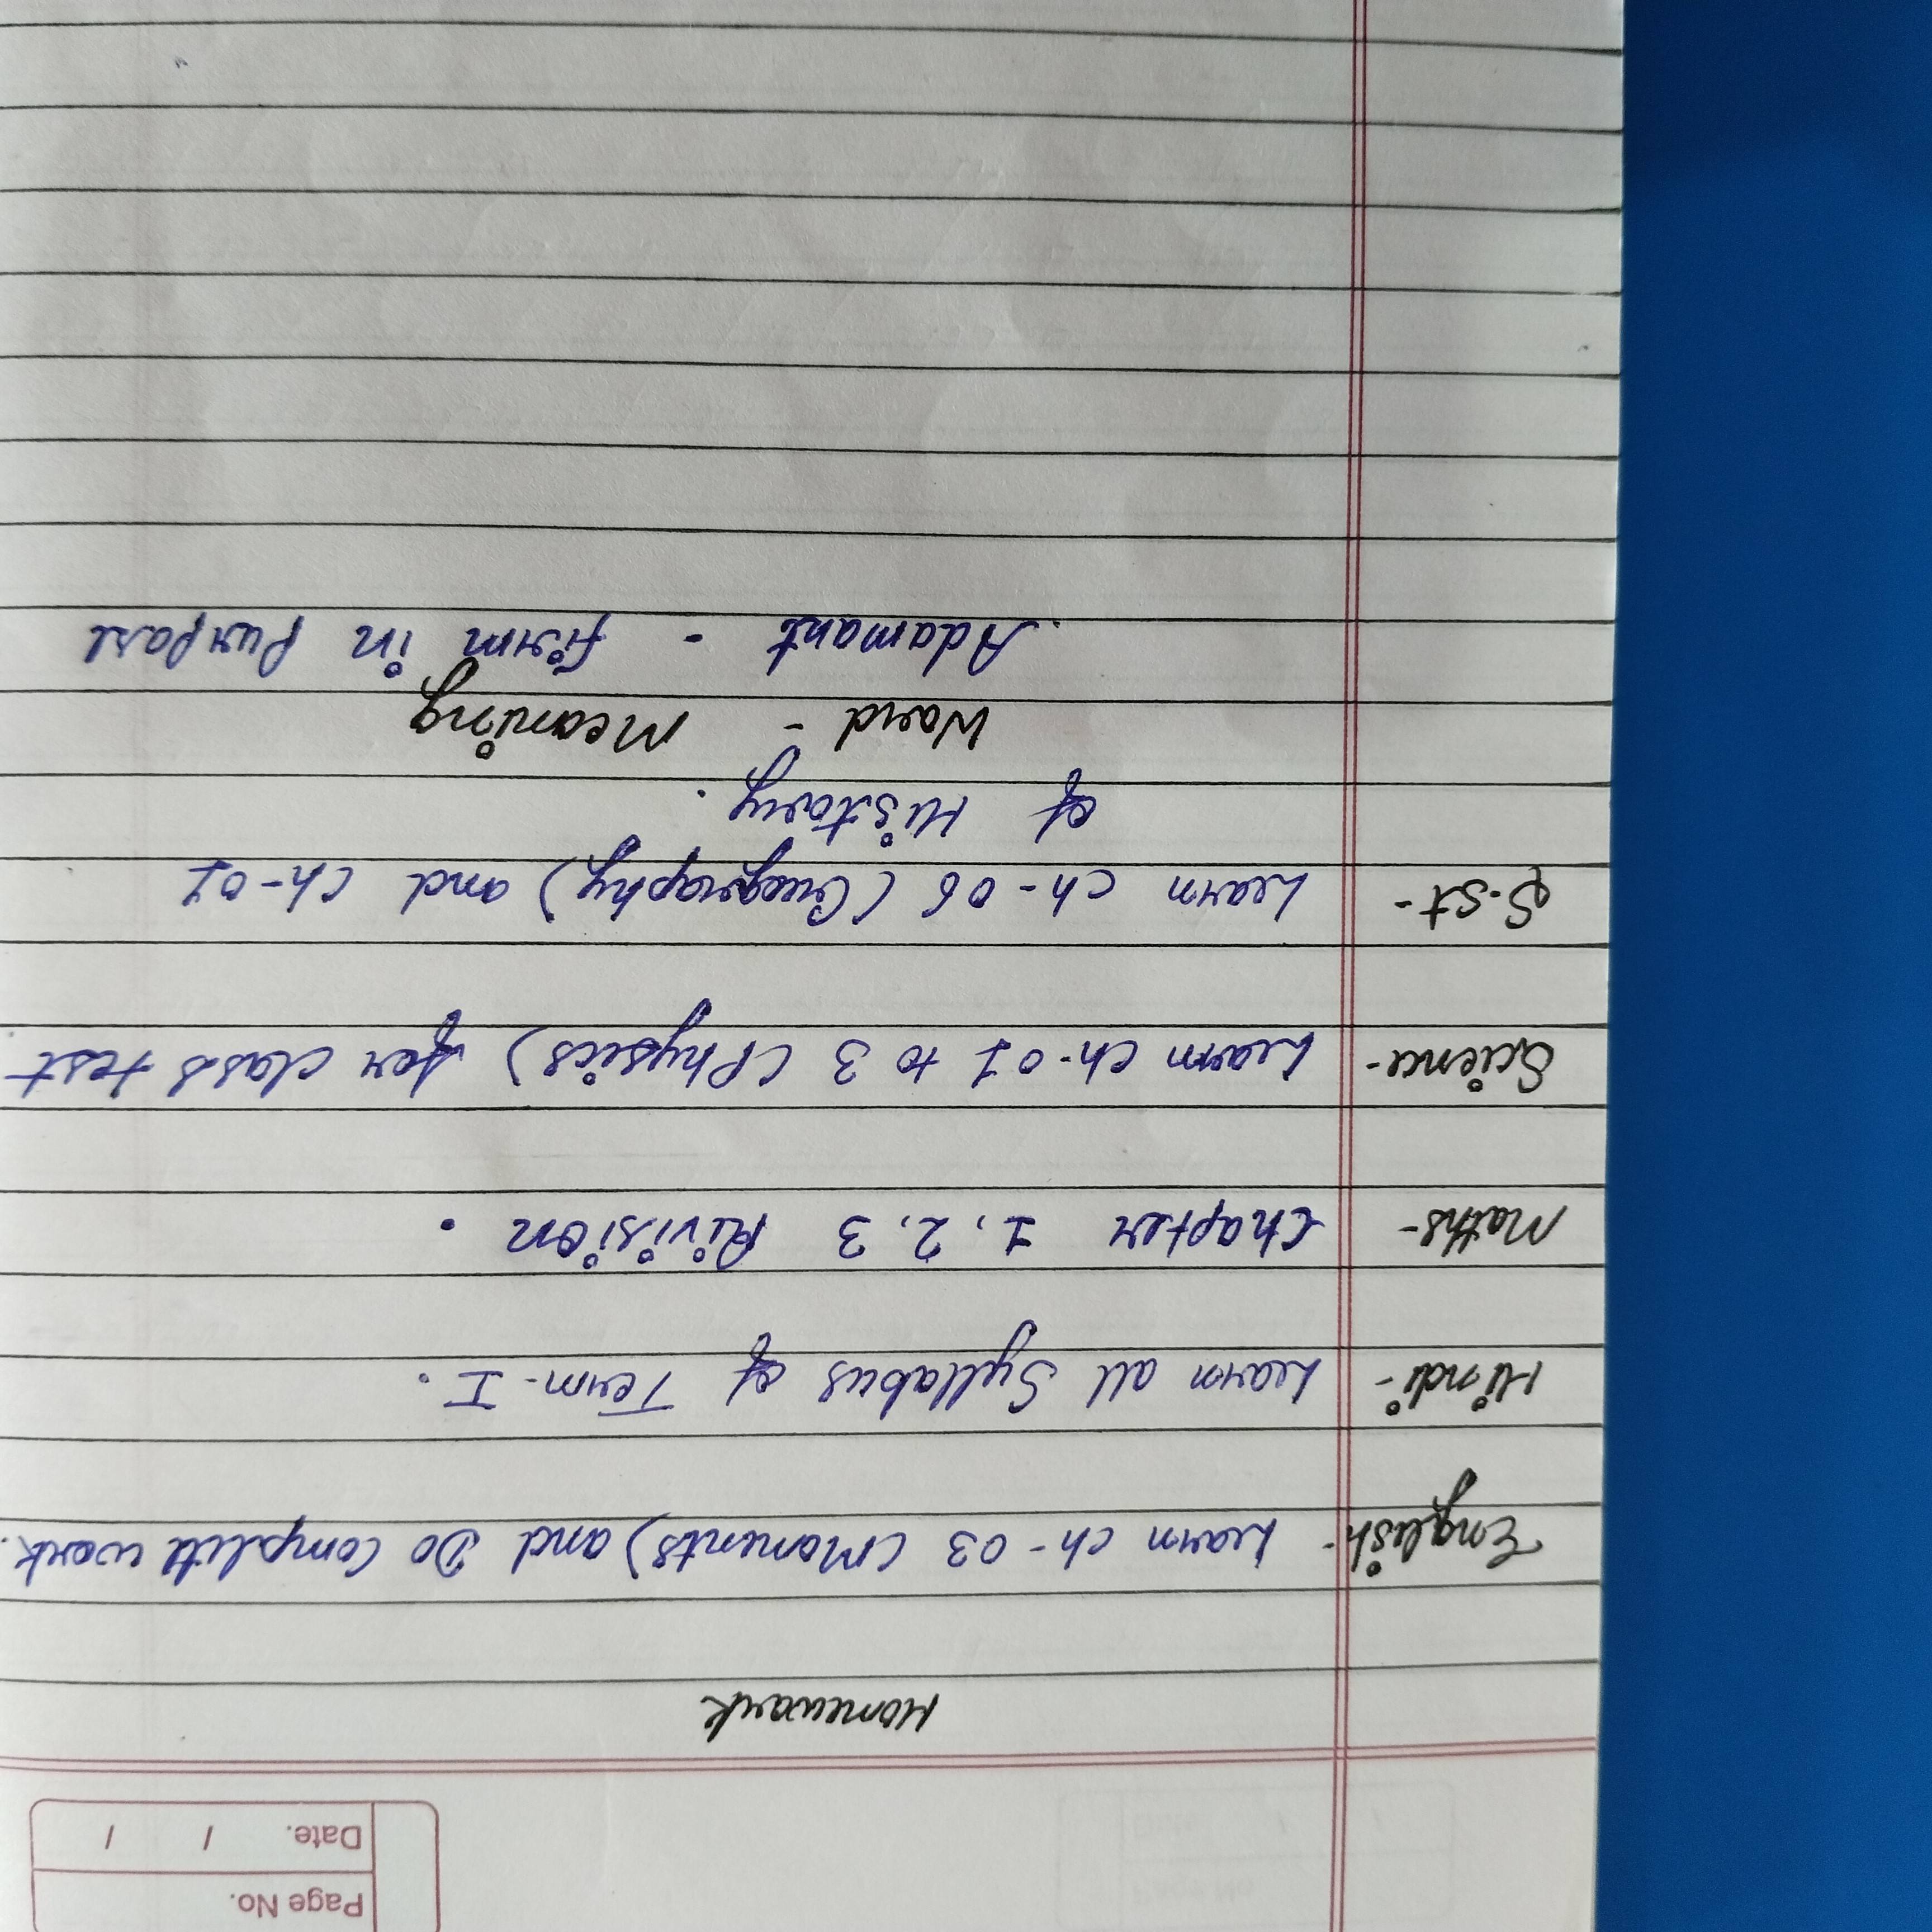 Page No.
Date. / /
Homework
English- Learn ch-03 (Moments) and Do complete work.
Hindi- Learn all Syllabus of Term-I.
Maths- Chapter 1, 2, 3 Rivision.
Science- Learn ch-01 to 3 (Physics) for class test
S.St- Learn ch-06 (Geography) and ch-01
of History.
Word - Meaning
Adamant - firm in Purpose